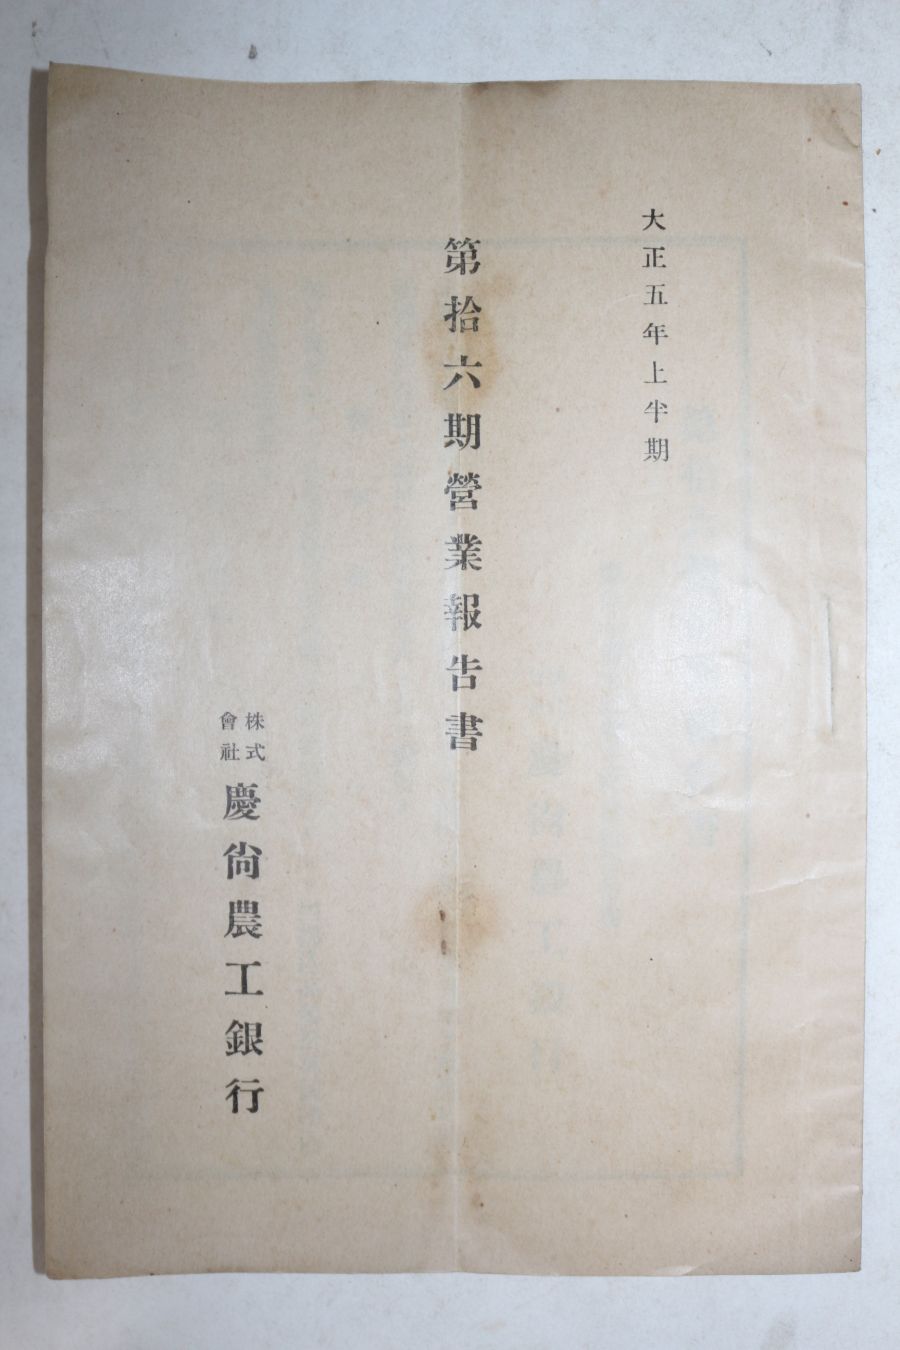 大正五年上半期
第拾六期營業報告書
株式會社慶尙農工銀行